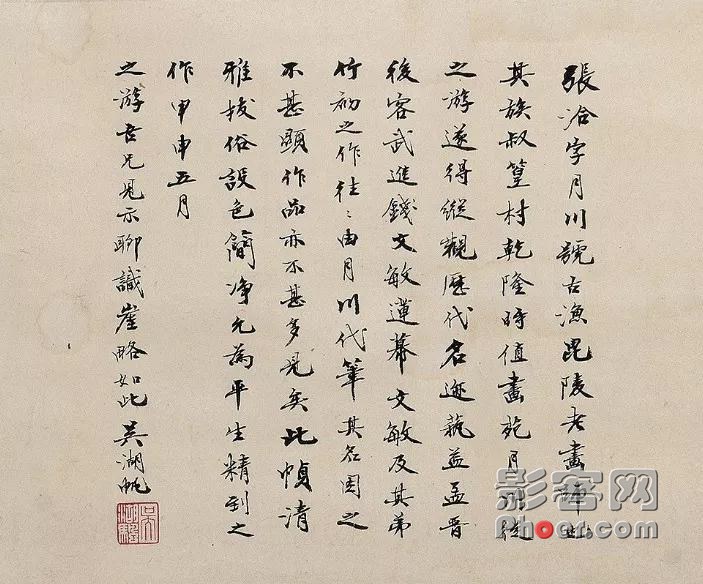 張洽字月川號古漁毘陵老畫師也
其族叔篁村乾隆時值畫苑月川從
之游遂得縱觀歷代名迹藝益孟晋
後客武進錢文敏蓮幕文敏及其弟
竹初之作往〻由月川代筆其名因之
不甚顯作品亦不甚多見矣此幀清
雅拔俗設色簡净允為平生精到之
作甲申五月
之游吾兄見示聊識崖略如此吳湖帆
影客网
Phoer.com